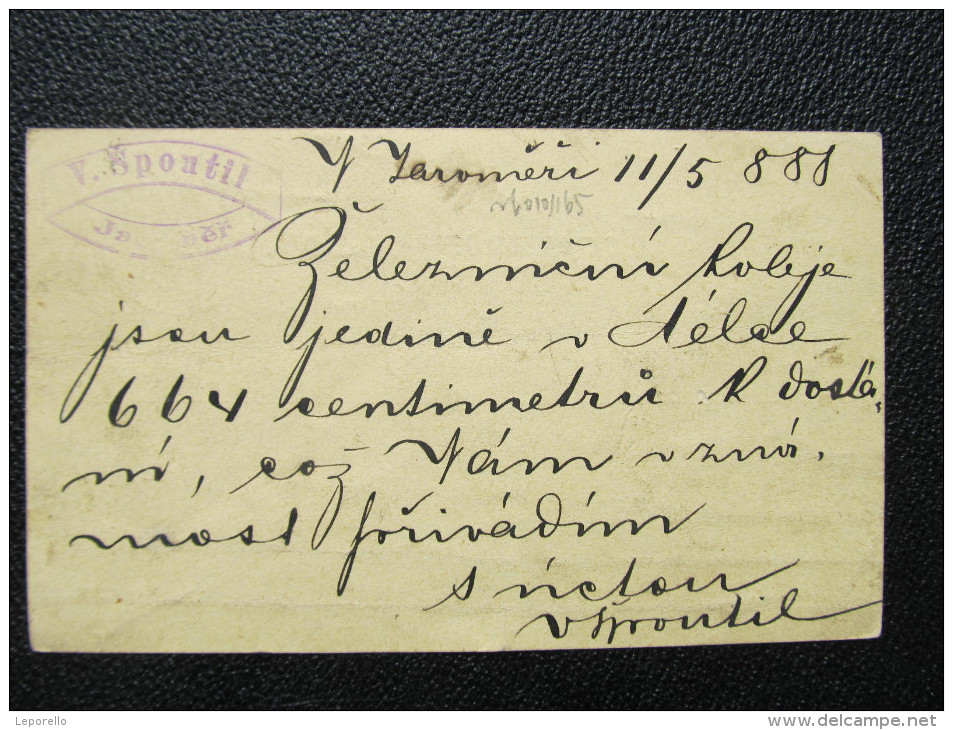 V. Špoutil
V Jaroměři 11/5 888
Železniční koleje
jsou jedině v délce
664 centimetrů k dostá-
ní, což Vám v zná-
most přivádím
s úctou
VŠpoutil
Leporello
www.delcampe.net